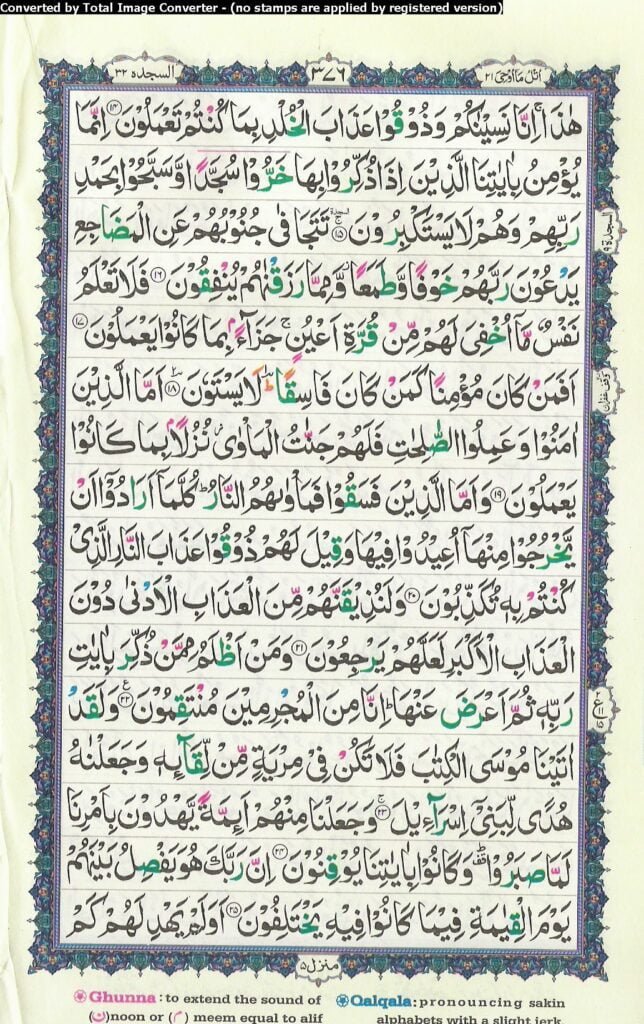 Converted by Total Image Converter - (no stamps are applied by registered version)
السجدة ٣٢
٣٧٦
اتل ما اوحى ٢١
هٰذَا ۚ اِنَّا نَسِيْنٰكُمْ وَذُوْقُوْا عَذَابَ الْخُلْدِ بِمَا كُنْتُمْ تَعْمَلُوْنَ ﴿۱۴﴾ اِنَّمَا
يُؤْمِنُ بِاٰيٰتِنَا الَّذِيْنَ اِذَا ذُكِّرُوْا بِهَا خَرُّوْا سُجَّدًا وَّسَبَّحُوْا بِحَمْدِ
رَبِّهِمْ وَهُمْ لَا يَسْتَكْبِرُوْنَ ﴿۱۵﴾ تَتَجَافٰى جُنُوْبُهُمْ عَنِ الْمَضَاجِعِ
يَدْعُوْنَ رَبَّهُمْ خَوْفًا وَّطَمَعًا وَّمِمَّا رَزَقْنٰهُمْ يُنْفِقُوْنَ ﴿۱۶﴾ فَلَا تَعْلَمُ
نَفْسٌ مَّاۤ اُخْفِيَ لَهُمْ مِّنْ قُرَّةِ اَعْيُنٍ ۚ جَزَآءًۢ بِمَا كَانُوْا يَعْمَلُوْنَ ﴿۱۷﴾
اَفَمَنْ كَانَ مُؤْمِنًا كَمَنْ كَانَ فَاسِقًا ؕ لَا يَسْتَوٗنَ ﴿۱۸﴾ اَمَّا الَّذِيْنَ
اٰمَنُوْا وَعَمِلُوا الصّٰلِحٰتِ فَلَهُمْ جَنّٰتُ الْمَاْوٰى ۫ نُزُلًاۢ بِمَا كَانُوْا
يَعْمَلُوْنَ ﴿۱۹﴾ وَاَمَّا الَّذِيْنَ فَسَقُوْا فَمَاْوٰىهُمُ النَّارُ ؕ كُلَّمَاۤ اَرَادُوْۤا اَنْ
يَّخْرُجُوْا مِنْهَاۤ اُعِيْدُوْا فِيْهَا وَقِيْلَ لَهُمْ ذُوْقُوْا عَذَابَ النَّارِ الَّذِيْ
كُنْتُمْ بِهٖ تُكَذِّبُوْنَ ﴿۲۰﴾ وَلَنُذِيْقَنَّهُمْ مِّنَ الْعَذَابِ الْاَدْنٰى دُوْنَ
الْعَذَابِ الْاَكْبَرِ لَعَلَّهُمْ يَرْجِعُوْنَ ﴿۲۱﴾ وَمَنْ اَظْلَمُ مِمَّنْ ذُكِّرَ بِاٰيٰتِ
رَبِّهٖ ثُمَّ اَعْرَضَ عَنْهَا ؕ اِنَّا مِنَ الْمُجْرِمِيْنَ مُنْتَقِمُوْنَ ﴿۲۲﴾ وَلَقَدْ
اٰتَيْنَا مُوْسَى الْكِتٰبَ فَلَا تَكُنْ فِيْ مِرْيَةٍ مِّنْ لِّقَآئِهٖ وَجَعَلْنٰهُ
هُدًى لِّبَنِيْۤ اِسْرَآءِيْلَ ﴿۲۳﴾ وَجَعَلْنَا مِنْهُمْ اَئِمَّةً يَّهْدُوْنَ بِاَمْرِنَا
لَمَّا صَبَرُوْا ؕ وَكَانُوْا بِاٰيٰتِنَا يُوْقِنُوْنَ ﴿۲۴﴾ اِنَّ رَبَّكَ هُوَ يَفْصِلُ بَيْنَهُمْ
يَوْمَ الْقِيٰمَةِ فِيْمَا كَانُوْا فِيْهِ يَخْتَلِفُوْنَ ﴿۲۵﴾ اَوَلَمْ يَهْدِ لَهُمْ كَمْ
منزل ۵
Ghunna : to extend the sound of
(ن) noon or (م) meem equal to alif
Qalqala : pronouncing sakin
alphabets with a slight jerk